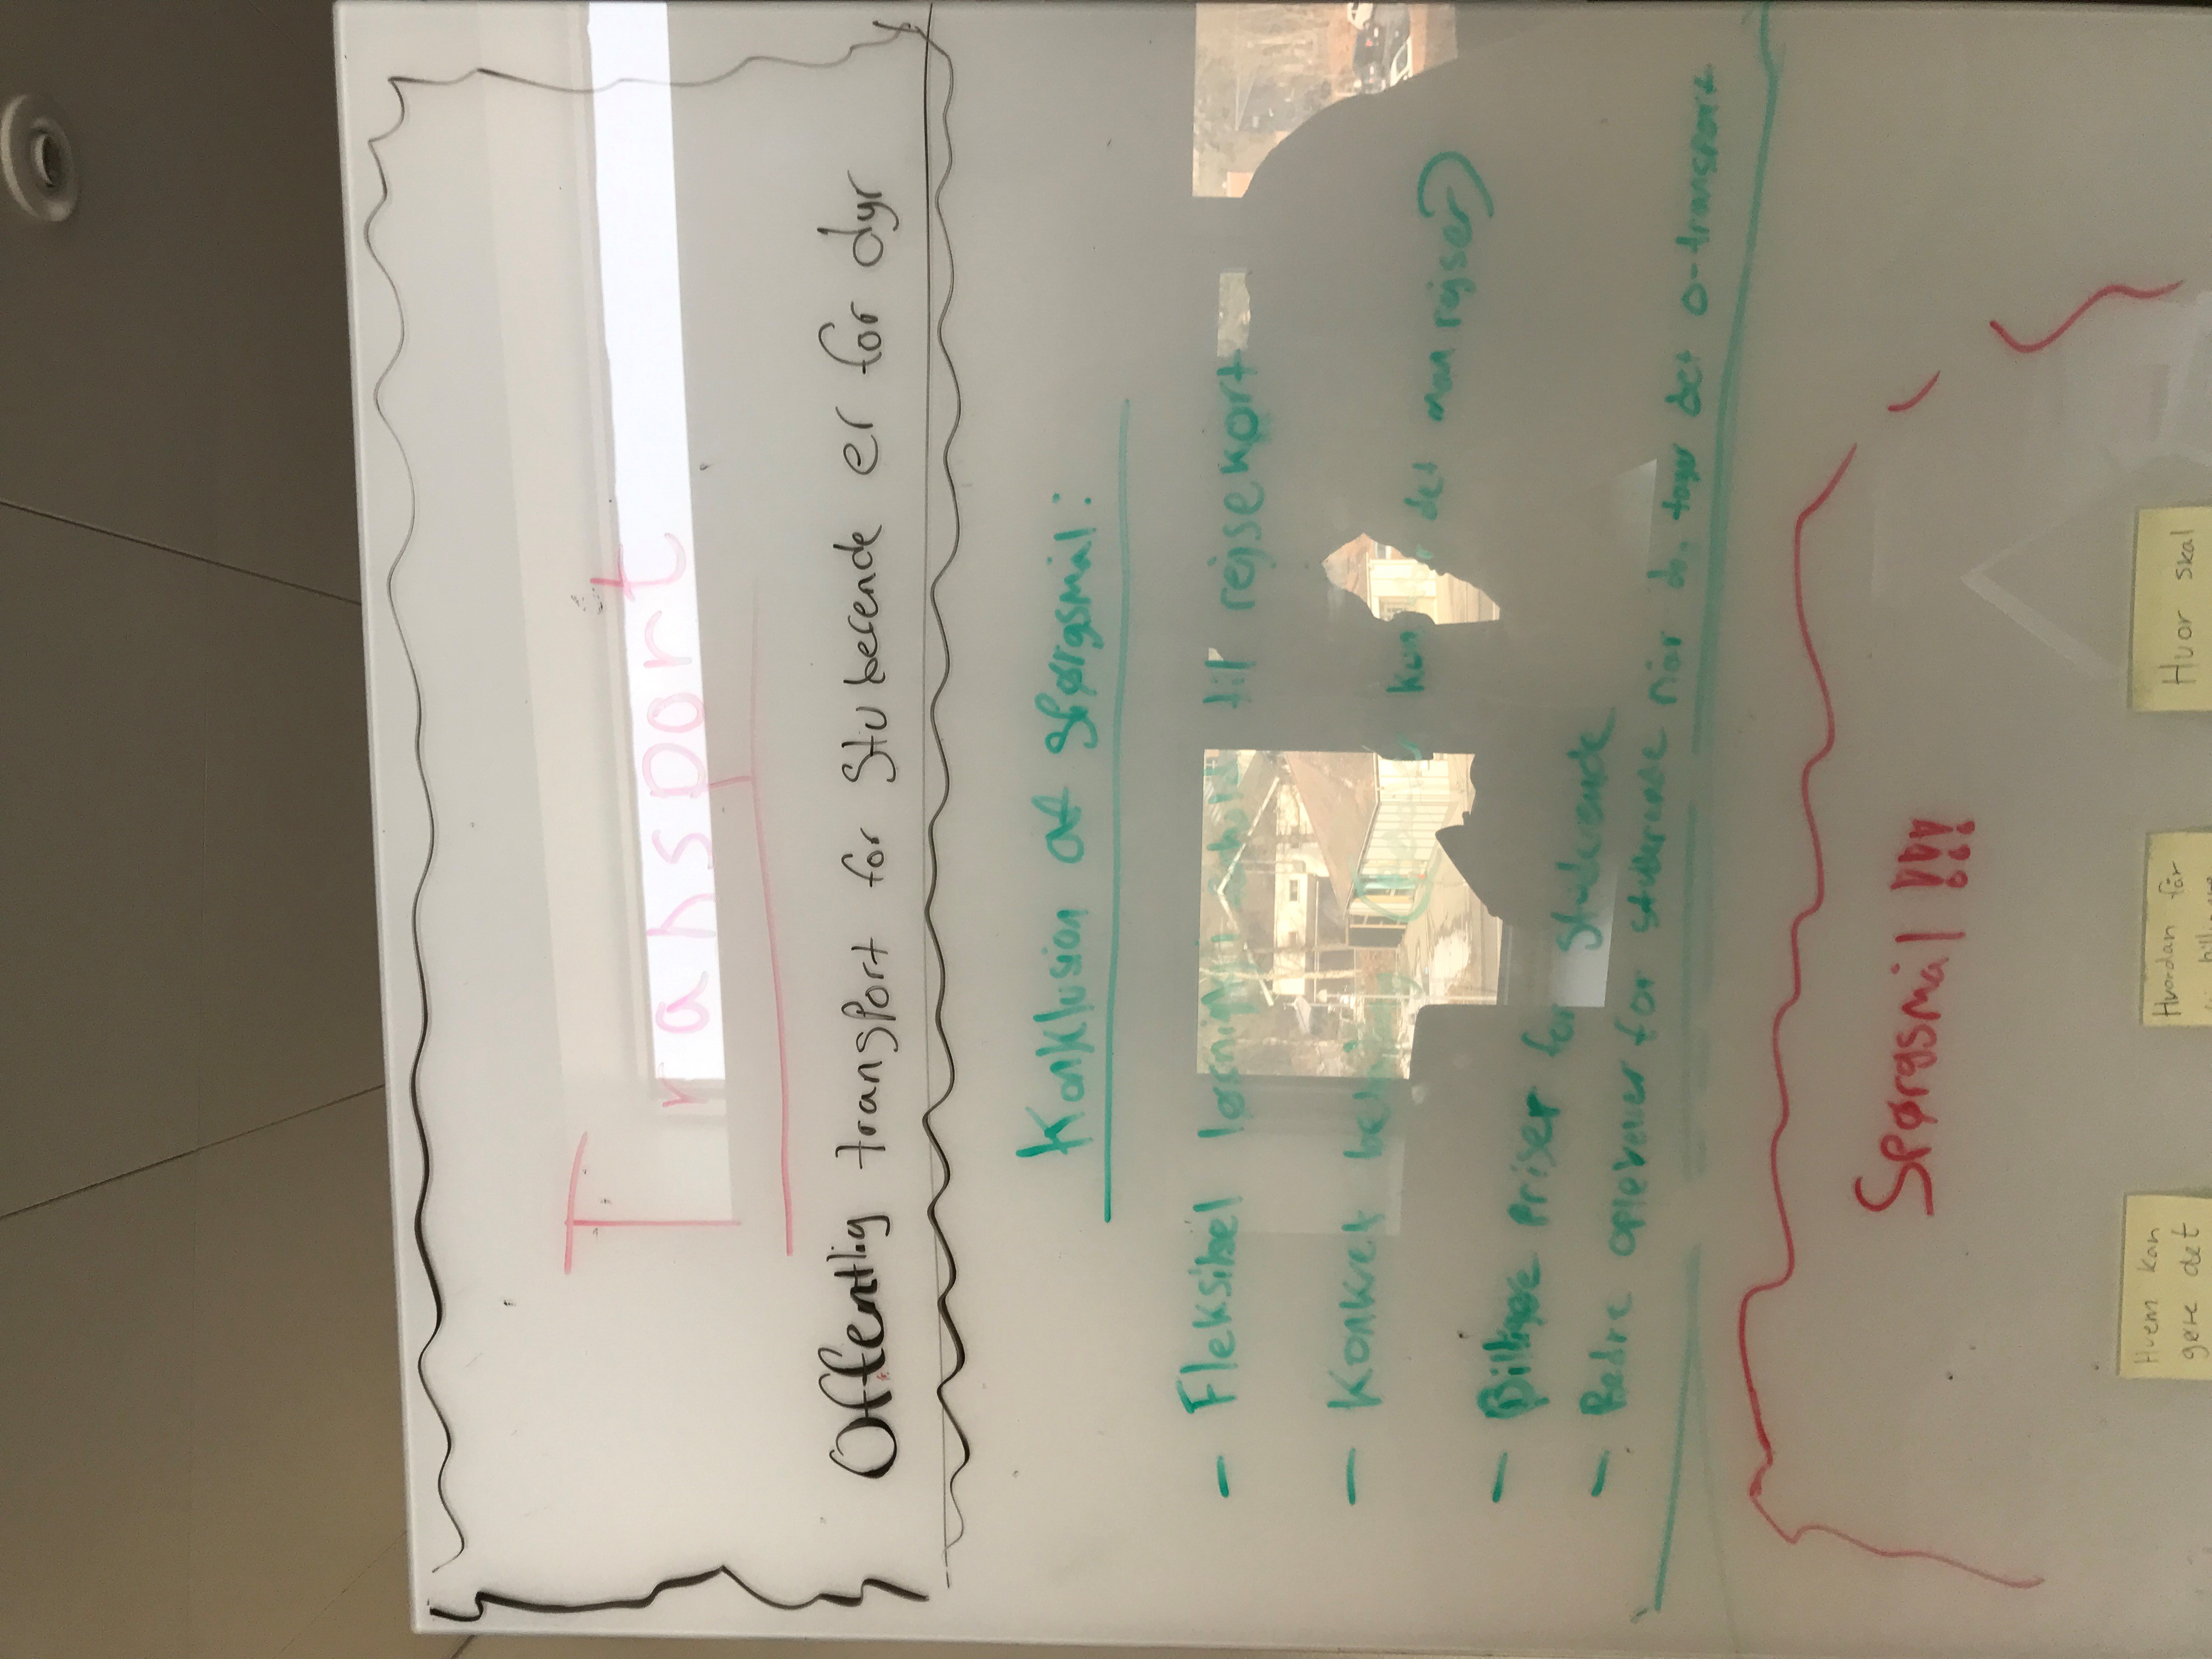 Transport
Offentlig transport for Studerende er for dyr
Konklusion af Spørgsmål:
- Fleksibel løsning i til rejsekort
- Konkret kun det man rejser)
- Billige Priser for Studerende
- Bedre oplevelser for studerende når de tager det o-transport
Spørgsmål !!!
Hvem kan
gøre det
Hvordan får
Hvor skal